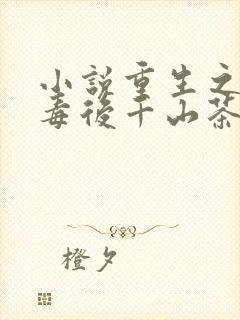 小說重生之
毒後千山茶
橙夕